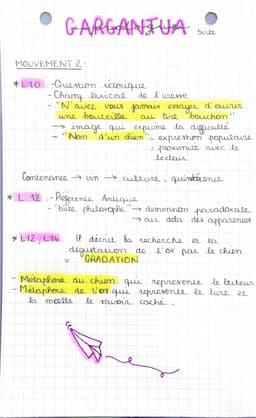 GARGANTUA
Suite
MOUVEMENT 2 :
* L10 : - Question rétorique
- Champ lexical de l'ivresse
- "N'avez vous jamais essayer d'ouvrir
une bouteille au tire bouchon"
→ image qui exprime la difficulté
- "Nom d'un chien" = expression populaire
= proximité avec le
lecteur
Contenance → vin → culture, quintessence
* L 12 : - Référence Antique
- "bête philosophe" → dimension paradoxale
→ au delà des apparences
* L12, L14 Il décrit la recherche et la
dégustation de l'os par le chien
= GRADATION
- Métaphore du chien qui représente le lecteur
- Métaphore de l'os qui représente le livre et
la moelle le savoir caché.